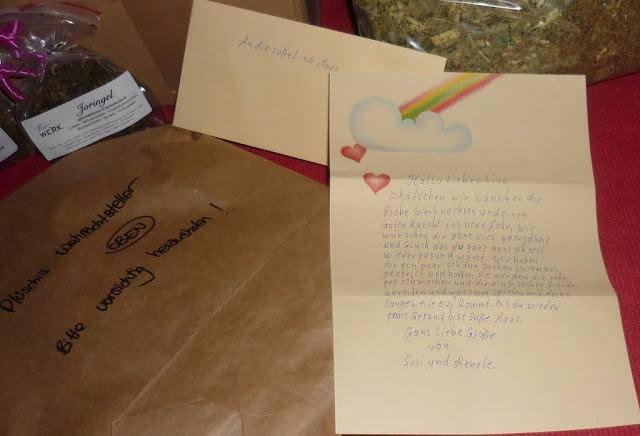 An die süße Lina Maus
Joringel
WERK
Plüschis Weihnachtsteller
OBEN
Bitte vorsichtig herausholen!
Hallo liebes Lina
schätzchen wir wünschen dir
frohe Weihnachten und einen
Guten Rutsch ins neue Jahr, wir
wünschen dir ganz viel gesundheit
und Glück das du ganz ganz schnell
wieder gesund wirst. Wir haben
dir ein paar schöne Sachen zusammen
gestellt und hoffen sie werden die sehr
gut schmecken und dir ein bisschen freude
bereiten und was zum spielen mit keine
langeweile auf kommt. Bis du wieder
ganz Gesund bist Süße Maus.
Ganz Liebe Grüße
von
Susi und Renate.